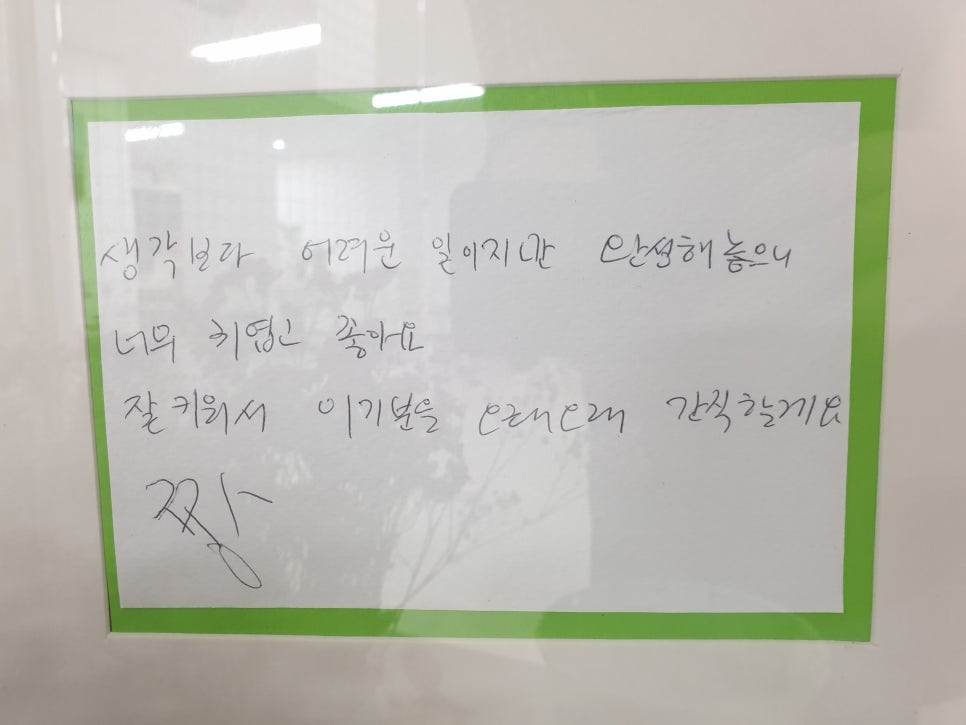 생각보다 어려운 일이지만 완성해 놓으니
너무 귀엽고 좋아요
잘키워서 이기분을 오래오래 간직할게요
짱